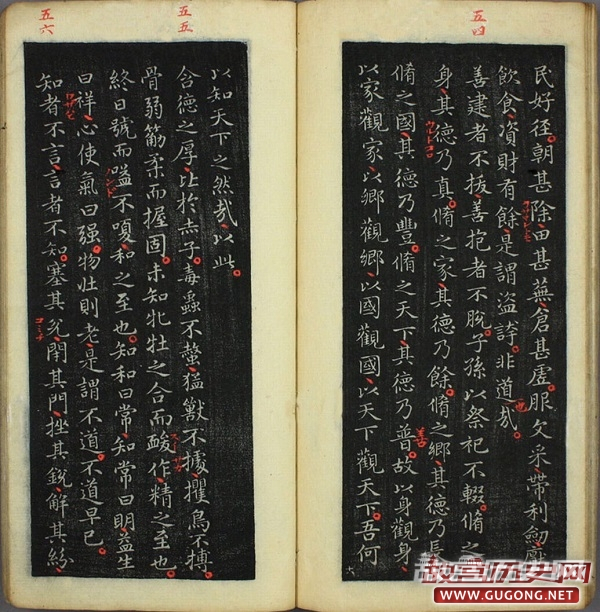 五四
民好径朝甚除田甚蕪倉甚虛服文采帶利劔厭
飲食資財有餘是謂盜誇非道哉
也
善建者不拔善抱者不脫子孫以祭祀不輟脩之
身其德乃真脩之家其德乃餘脩之鄉其德乃長
脩之國其德乃豐脩之天下其德乃普故以身觀身
善
以家觀家以鄉觀鄉以國觀國以天下觀天下吾何
五五
以知天下之然哉以此
含德之厚比於赤子毒蟲不螫猛獸不據攫鳥不搏
骨弱筋柔而握固未知牝牡之合而酸作精之至也
終日號而嗌不嗄和之至也知和曰常知常曰明益生
曰祥心使氣曰强物壯則老是謂不道不道早已
五六
知者不言言者不知塞其兌閇其門挫其銳解其紛
故宫历史网
WWW.GUGONG.NET